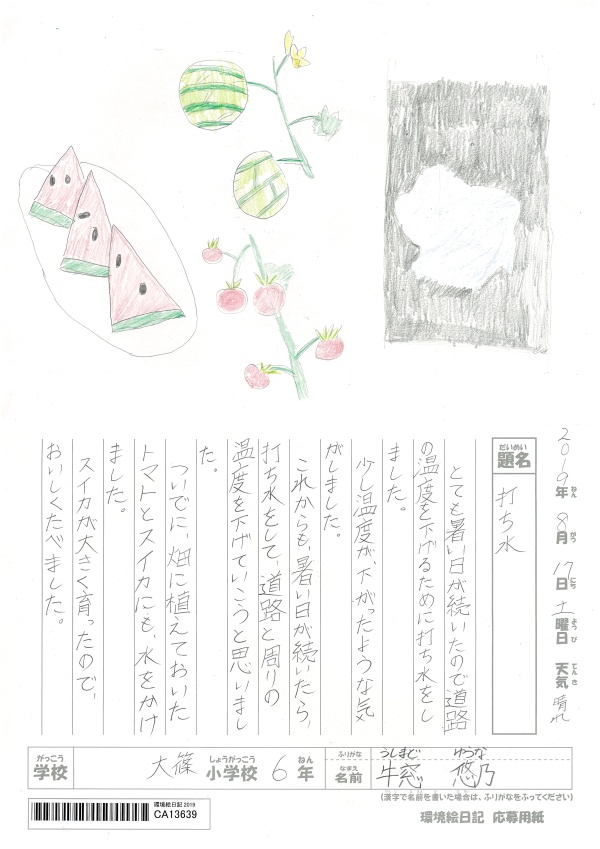 2019年ねん 8月がつ 17日にち 土曜日ようび 天気てんき 晴れ
だいめい
題名
打ち水
とても暑い日が続いたので道路
の温度を下げるために打ち水をし
ました。
少し温度が、下がったような気
がしました。
これからも、暑い日が続いたら、
打ち水をして、道路と周りの
温度を下げていこうと思いまし
た。
ついでに、畑に植えておいた
トマトとスイカにも、水をかけ
ました。
スイカが大きく育ったので、
おいしくたべました。
がっこう
学校
大篠
しょうがっこう
小学校
6
ねん
年
ふりがな
うしまど ゆうな
なまえ
名前
牛窓 悠乃
(漢字で名前を書いた場合は、ふりがなをふってください)
環境絵日記 2019
CA13639
環境絵日記 応募用紙